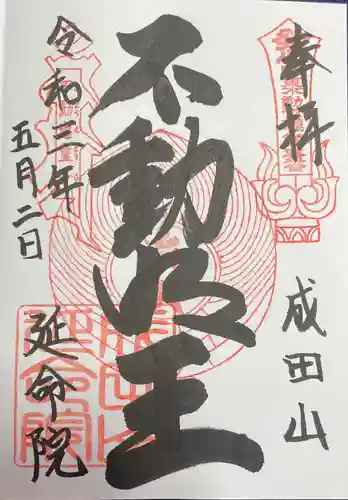 奉拝
成田山
不動明王
令和三年
五月二日
延命院